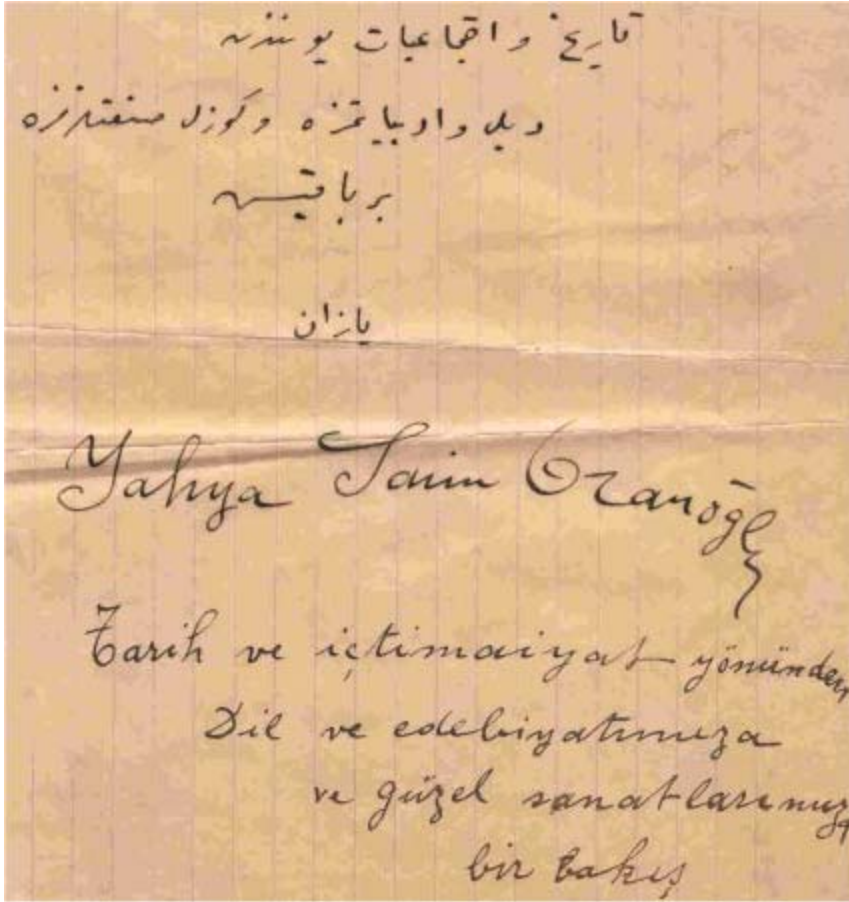 تاريخ و اجتماعيات يوننن
ديل و ادبياتمزه و كوزل صنعتلرمزه
بر باقيش
يازان
Yahya Saim Ozanoğlu
Tarih ve içtimaiyat yönünden
Dil ve edebiyatımıza
ve güzel sanatlarımıza
bir bakış